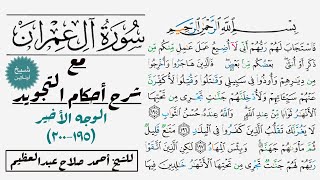 سورة آل عمران
مع
شرح أحكام التجويد
الوجه الأخير
(١٩٥-٢٠٠)
للشيخ أحمد صلاح عبدالعظيم
بِسْمِ ٱللَّهِ ٱلرَّحْمَٰنِ ٱلرَّحِيمِ
فَٱسْتَجَابَ لَهُمْ رَبُّهُمْ أَنِّى لَآ أُضِيعُ عَمَلَ عَٰمِلٍ مِّنكُم مِّن
ذَكَرٍ أَوْ أُنثَىٰ بَعْضُكُم مِّنۢ بَعْضٍ فَٱلَّذِينَ هَاجَرُوا۟ وَأُخْرِجُوا۟
مِن دِيَٰرِهِمْ وَأُوذُوا۟ فِى سَبِيلِى وَقَٰتَلُوا۟ وَقُتِلُوا۟ لَأُكَفِّرَنَّ
عَنْهُمْ سَيِّـَٔاتِهِمْ وَلَأُدْخِلَنَّهُمْ جَنَّٰتٍ تَجْرِى مِن تَحْتِهَا
ٱلْأَنْهَٰرُ ثَوَابًا مِّنْ عِندِ ٱللَّهِ وَٱللَّهُ عِندَهُۥ حُسْنُ ٱلثَّوَابِ ١٩٥
لَا يَغُرَّنَّكَ تَقَلُّبُ ٱلَّذِينَ كَفَرُوا۟ فِى ٱلْبِلَٰدِ ١٩٦ مَتَٰعٌ قَلِيلٌ
ثُمَّ مَأْوَىٰهُمْ جَهَنَّمُ وَبِئْسَ ٱلْمِهَادُ ١٩٧ لَٰكِنِ ٱلَّذِينَ ٱتَّقَوْا۟
رَبَّهُمْ لَهُمْ جَنَّٰتٌ تَجْرِى مِن تَحْتِهَا ٱلْأَنْهَٰرُ خَٰلِدِينَ فِيهَا